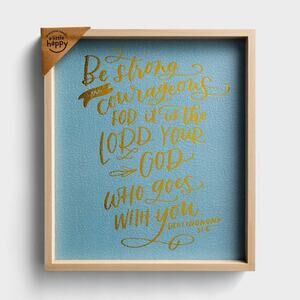 a little
happy
Be strong
AND
courageous
FOR it is the
LORD YOUR
GOD
WHO goes
WITH you
DEUTERONOMY
31:6